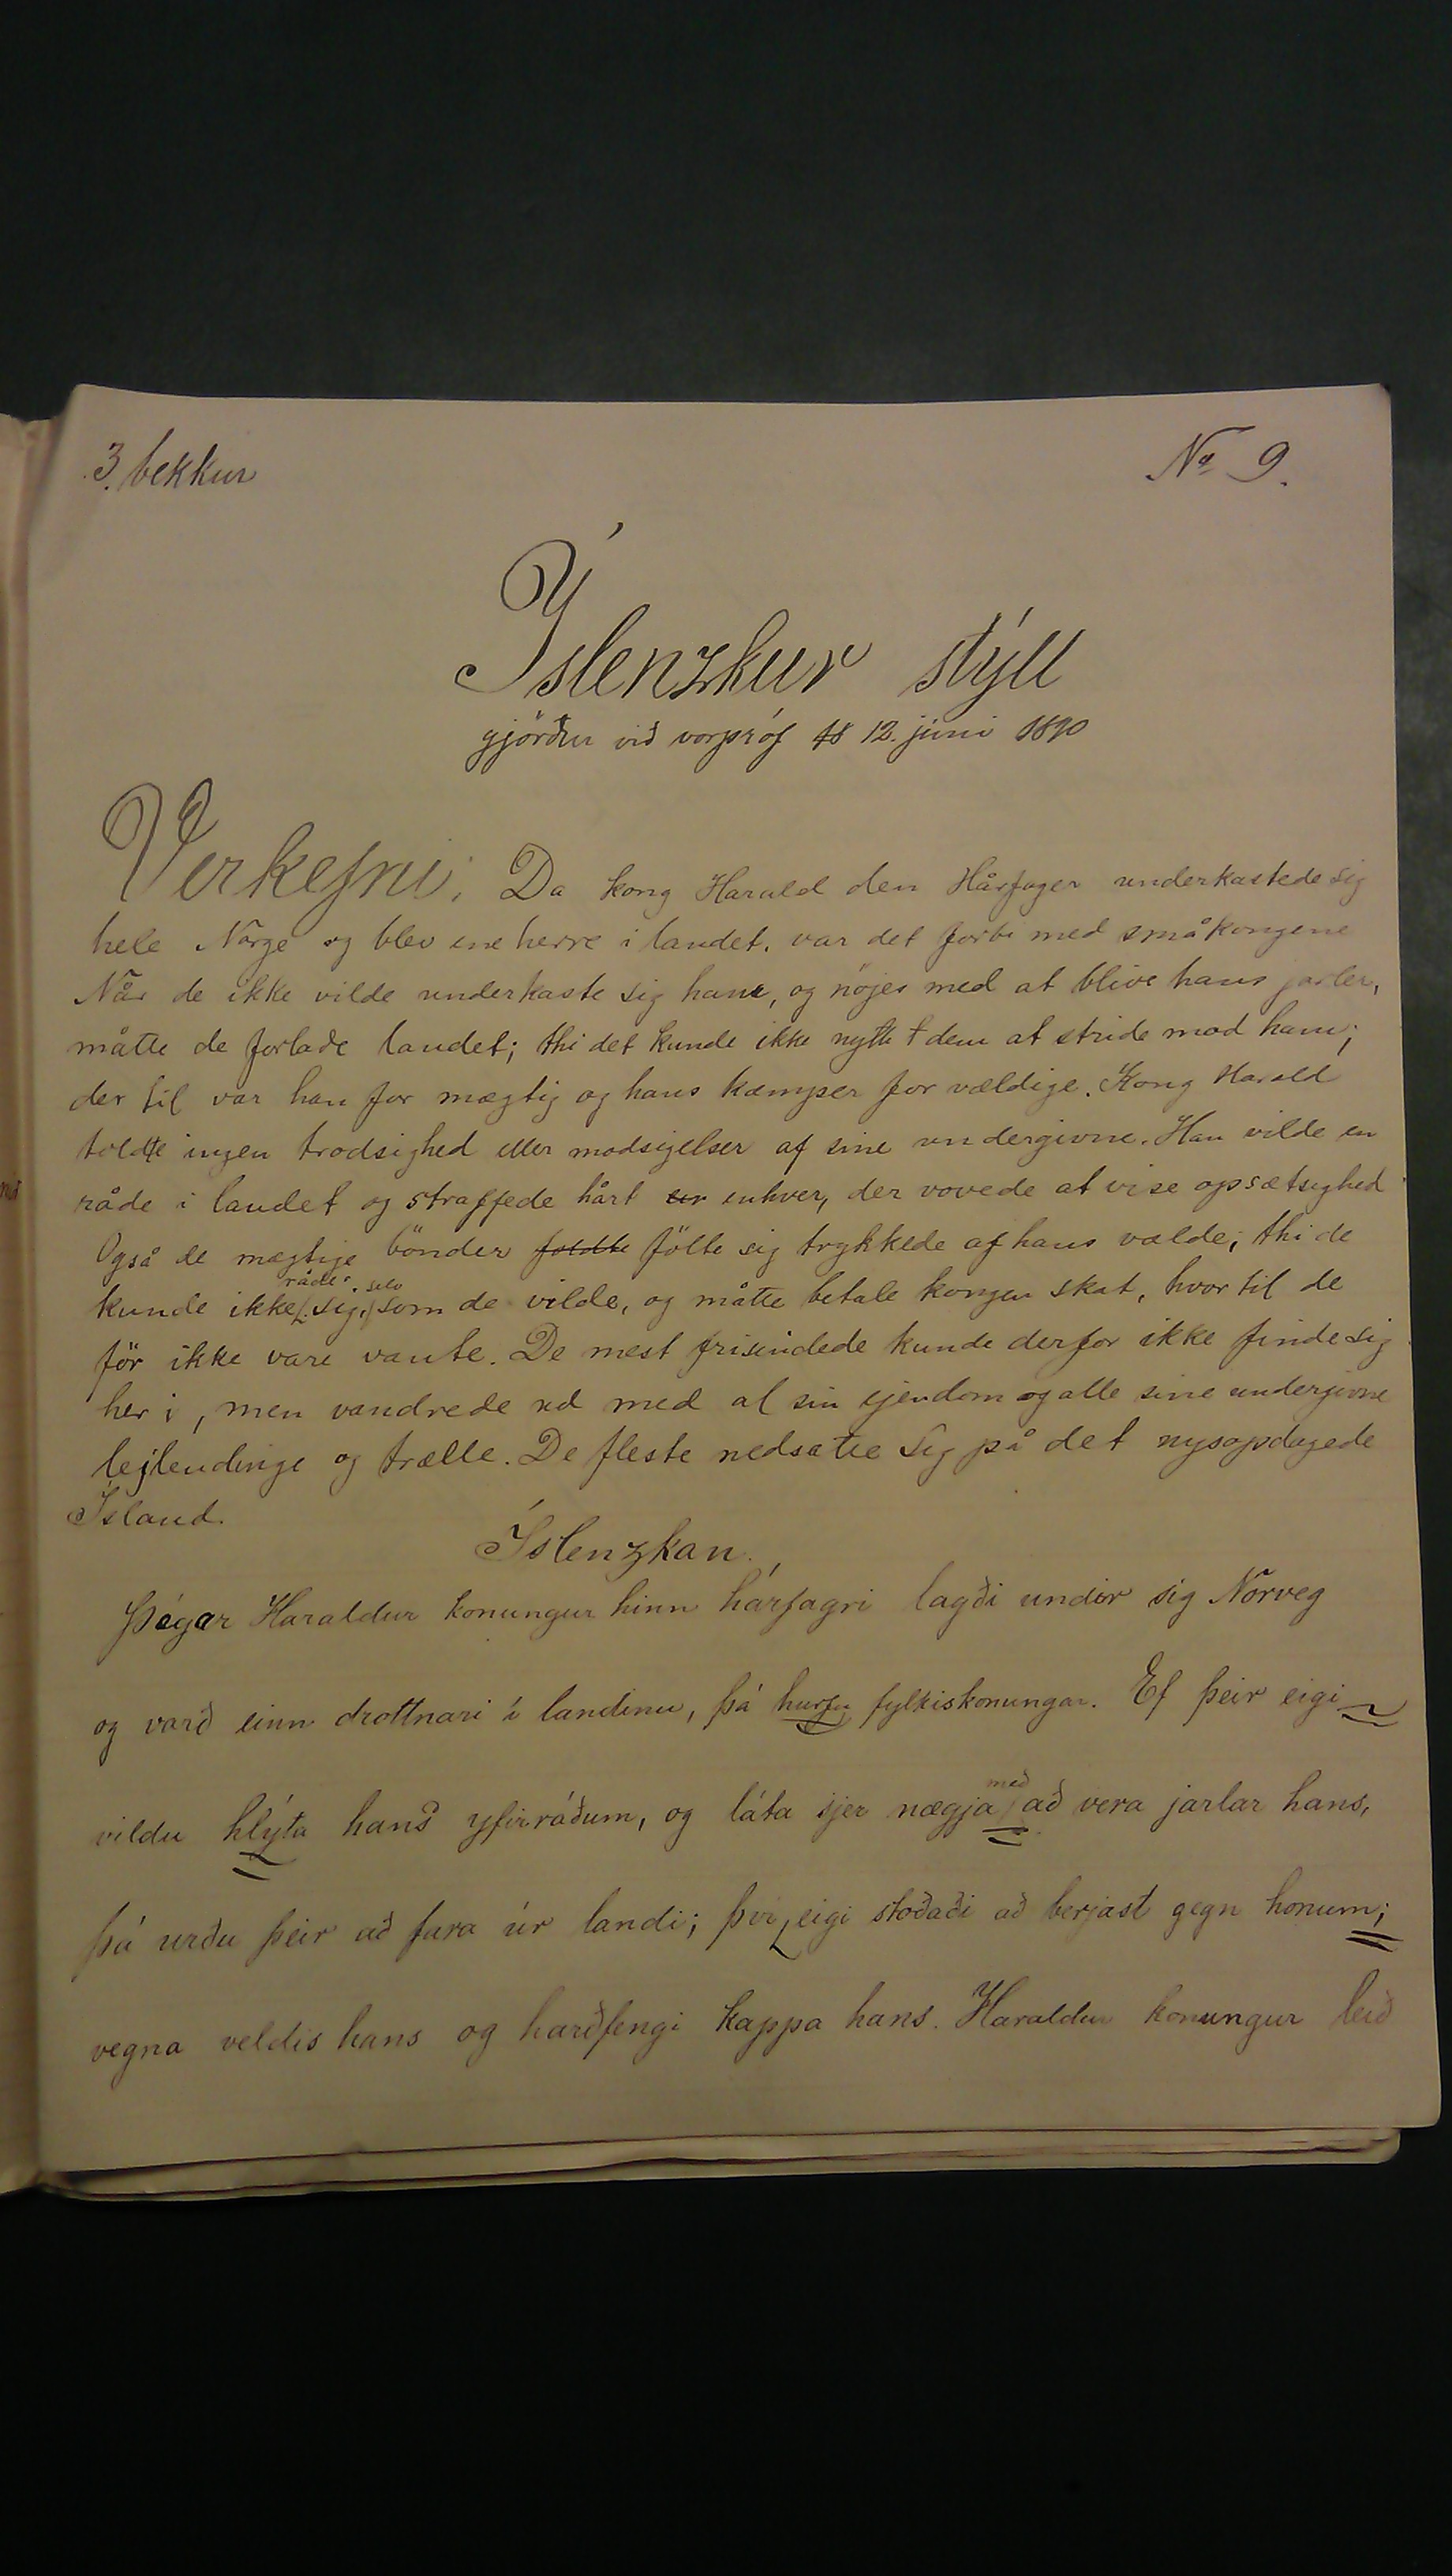 3. bekkur
No 9.
Íslenzkur stýll
gjörður við vorpróf 12. júni 1890
Verkefni. Da kong Harald den Hårfager underkastede sig
hele Norge og blev ene herre i landet, var det forbi med småkongene
Når de ikke vilde underkaste sig hans, og nöjes med at blive hans jarler,
måtte de forlade landet; thi det kunde ikke nytte dem at stride mod ham;
der til var han for mægtig og hans kæmper for vældige. Kong Harald
toldte ingen trodsighed eller modsigelser af sine undergivne. Han vilde en
råde i landet og straffede hårt enhver, der vovede at vise opsætsighed
Også de mægtige bönder fölte sig trykkede af hans vælde; thi de
kunde ikke råde sig selv som de vilde, og måtte betale kongen skat, hvor til de
för ikke vare vante. De mest frisindede kunde derfor ikke finde sig
her i, men vandrede ud med al sin ejendom og alle sine undergivne
lejlendinge og trælle. De fleste nedsatte sig på det nysopdagede
Ísland.
Íslenzkan.
Þegar Haraldur konungur hinn hárfagri lagði undir sig Norveg
og varð einn drottnari í landinu, þá hurfu fylkiskonungar. Ef þeir eigi
vildu hlýta hans yfirráðum, og láta sjer nægja með að vera jarlar hans,
þá urðu þeir að fara úr landi; því eigi stoðaði að berjast gegn honum;
vegna veldis hans og harðfengi kappa hans. Haraldur konungur leið